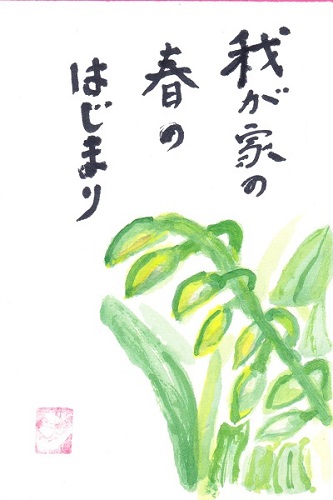 我が家の
春の
はじまり